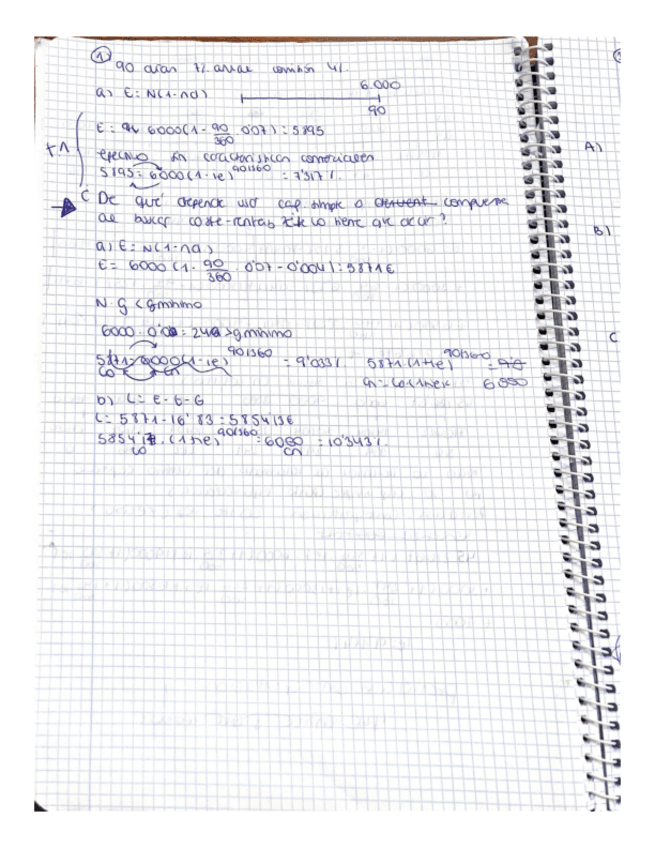 ①
90 días 7% anual comisión 4%.
a) E = N(1-nd)
6.000
90
E = 6000(1 - 90/360 · 0'07) = 5895
efectivo sin características comerciales
5895 = 6000(1-ie)^90/360 = 7'317%.
¿De qué depende usar cap. simple o compuesta
de buscar coste-rentab
a) E = N(1-nd)
E = 6000(1 - 90/360 · 0'07 - 0'004) = 5871€
N·g < gmínimo
6000 · 0'0 = 24 > gmínimo
5871 = 6000(1-ie)^90/360 = 9'033% 5871 (1+ie)^90/360 =
Co Cn 6000
b) L = E - G - G
L = 5871 - 16'83 = 5854'13€
5854'17 · (1+ie)^90/360 = 6000 = 10'343%.
Co Cn
A)
B)
C